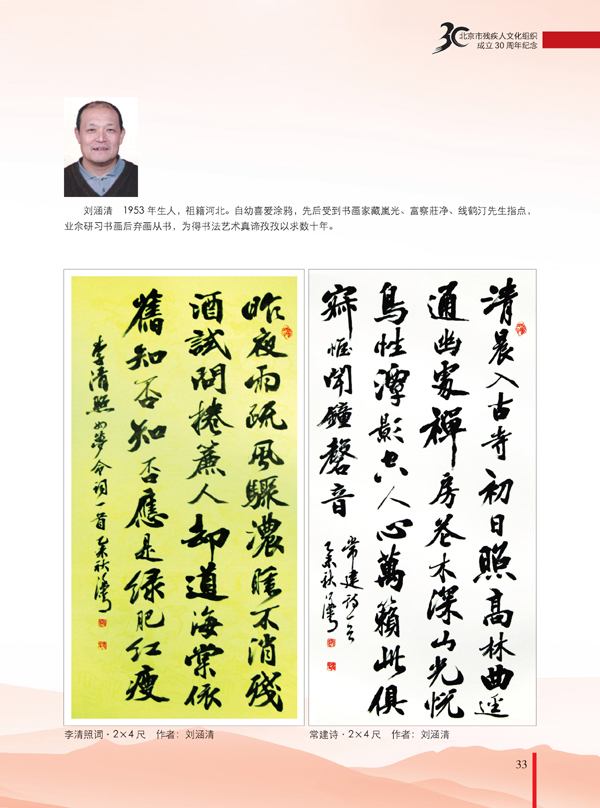 北京市残疾人文化组织
成立30周年纪念
刘涵清 1953年生人，祖籍河北。自幼喜爱涂鸦，先后受到书画家藏嵐光、富察莊净、线鹤汀先生指点，
业余研习书画后弃画从书，为得书法艺术真谛孜孜以求数十年。
昨夜雨疏風驟濃睡不消殘
酒試問捲簾人却道海棠依
舊知否知否應是绿肥红瘦
李清照如夢令詞一首 乙未秋
清晨入古寺初日照高林曲迳
通幽處禪房花木深山光悦
鳥性潭影空人心萬籟此俱
寂惟聞鐘磬音
常建詩一首
乙未秋
李清照词·2×4尺 作者：刘涵清
常建诗·2×4尺 作者：刘涵清
33